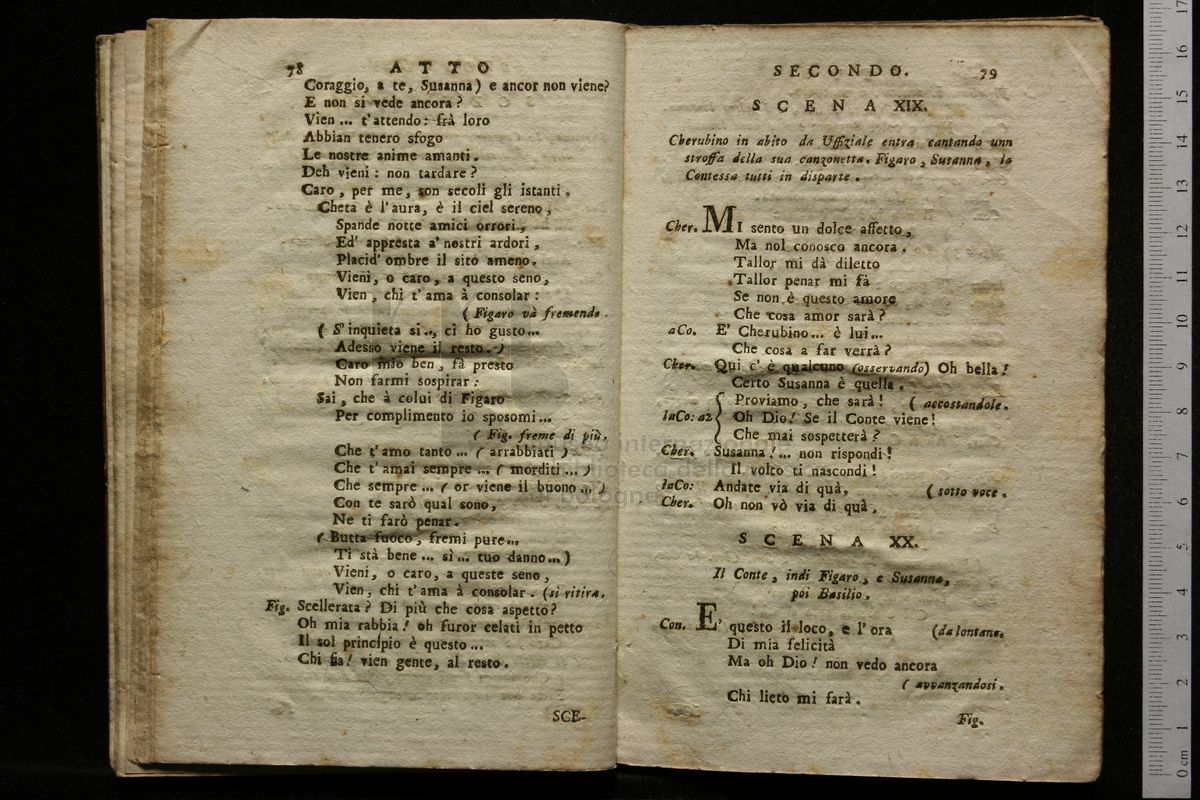 78 ATTO
Coraggio, a te, Susanna) e ancor non viene?
E non si vede ancora?
Vien ... t'attendo: frà loro
Abbian tenero sfogo
Le nostre anime amanti.
Deh vieni: non tardare?
Caro, per me, son secoli gli istanti.
Cheta è l'aura, è il ciel sereno,
Spande notte amici orrori,
Ed' appresta a' nostri ardori,
Placid' ombre il sito ameno.
Vieni, o caro, a questo seno,
Vien, chi t'ama à consolar:
( Figaro và fremendo.
( S'inquieta si.., ci ho gusto...
Adesso viene il resto.)
Caro mio ben, fà presto
Non farmi sospirar:
Sai, che à colui di Figaro
Per complimento io sposomi...
( Fig. freme di più.
Che t'amo tanto... ( arrabbiati )
Che t'amai sempre ... ( morditi ... )
Che sempre ... ( or viene il buono ... )
Con te sarò qual sono,
Ne ti farò penar.
( Butta fuoco, fremi pure...
Ti stà bene ... sì ... tuo danno...)
Vieni, o caro, a queste seno,
Vien, chi t'ama à consolar. (si ritira.
Fig. Scellerata? Di più che cosa aspetto?
Oh mia rabbia! oh furor celati in petto
Il sol principio è questo...
Chi sia! vien gente, al resto.
SCE-
SECONDO. 79
SCENA XIX.
Cherubino in abito da Uffiziale entra cantando unn
stroffa della sua canzonetta. Figaro, Susanna, la
Contessa tutti in disparte.
Cher. MI sento un dolce affetto,
Ma nol conosco ancora.
Tallor mi dà diletto
Tallor penar mi fà
Se non è questo amore
Che cosa amor sarà?
aCo. E' Cherubino... è lui...
Che cosa a far verrà?
Cher. Qui c' è qualcuno (osservando) Oh bella!
Certo Susanna è quella.
Proviamo, che sarà! ( accostandole.
laCo: a2 Oh Dio! Se il Conte viene!
Che mai sospetterà?
Cher. Susanna!... non rispondi!
Il volto ti nascondi!
laCo: Andate via di quà, ( sotto voce.
Cher. Oh non vò via di quà.
SCENA XX.
Il Conte, indi Figaro, e Susanna,
poi Basilio.
Con. E' questo il loco, e l'ora (da lontano.
Di mia felicità
Ma oh Dio! non vedo ancora
( avvanzandosi.
Chi lieto mi farà.
Fig.
0 cm 1 2 3 4 5 6 7 8 9 10 11 12 13 14 15 16 17